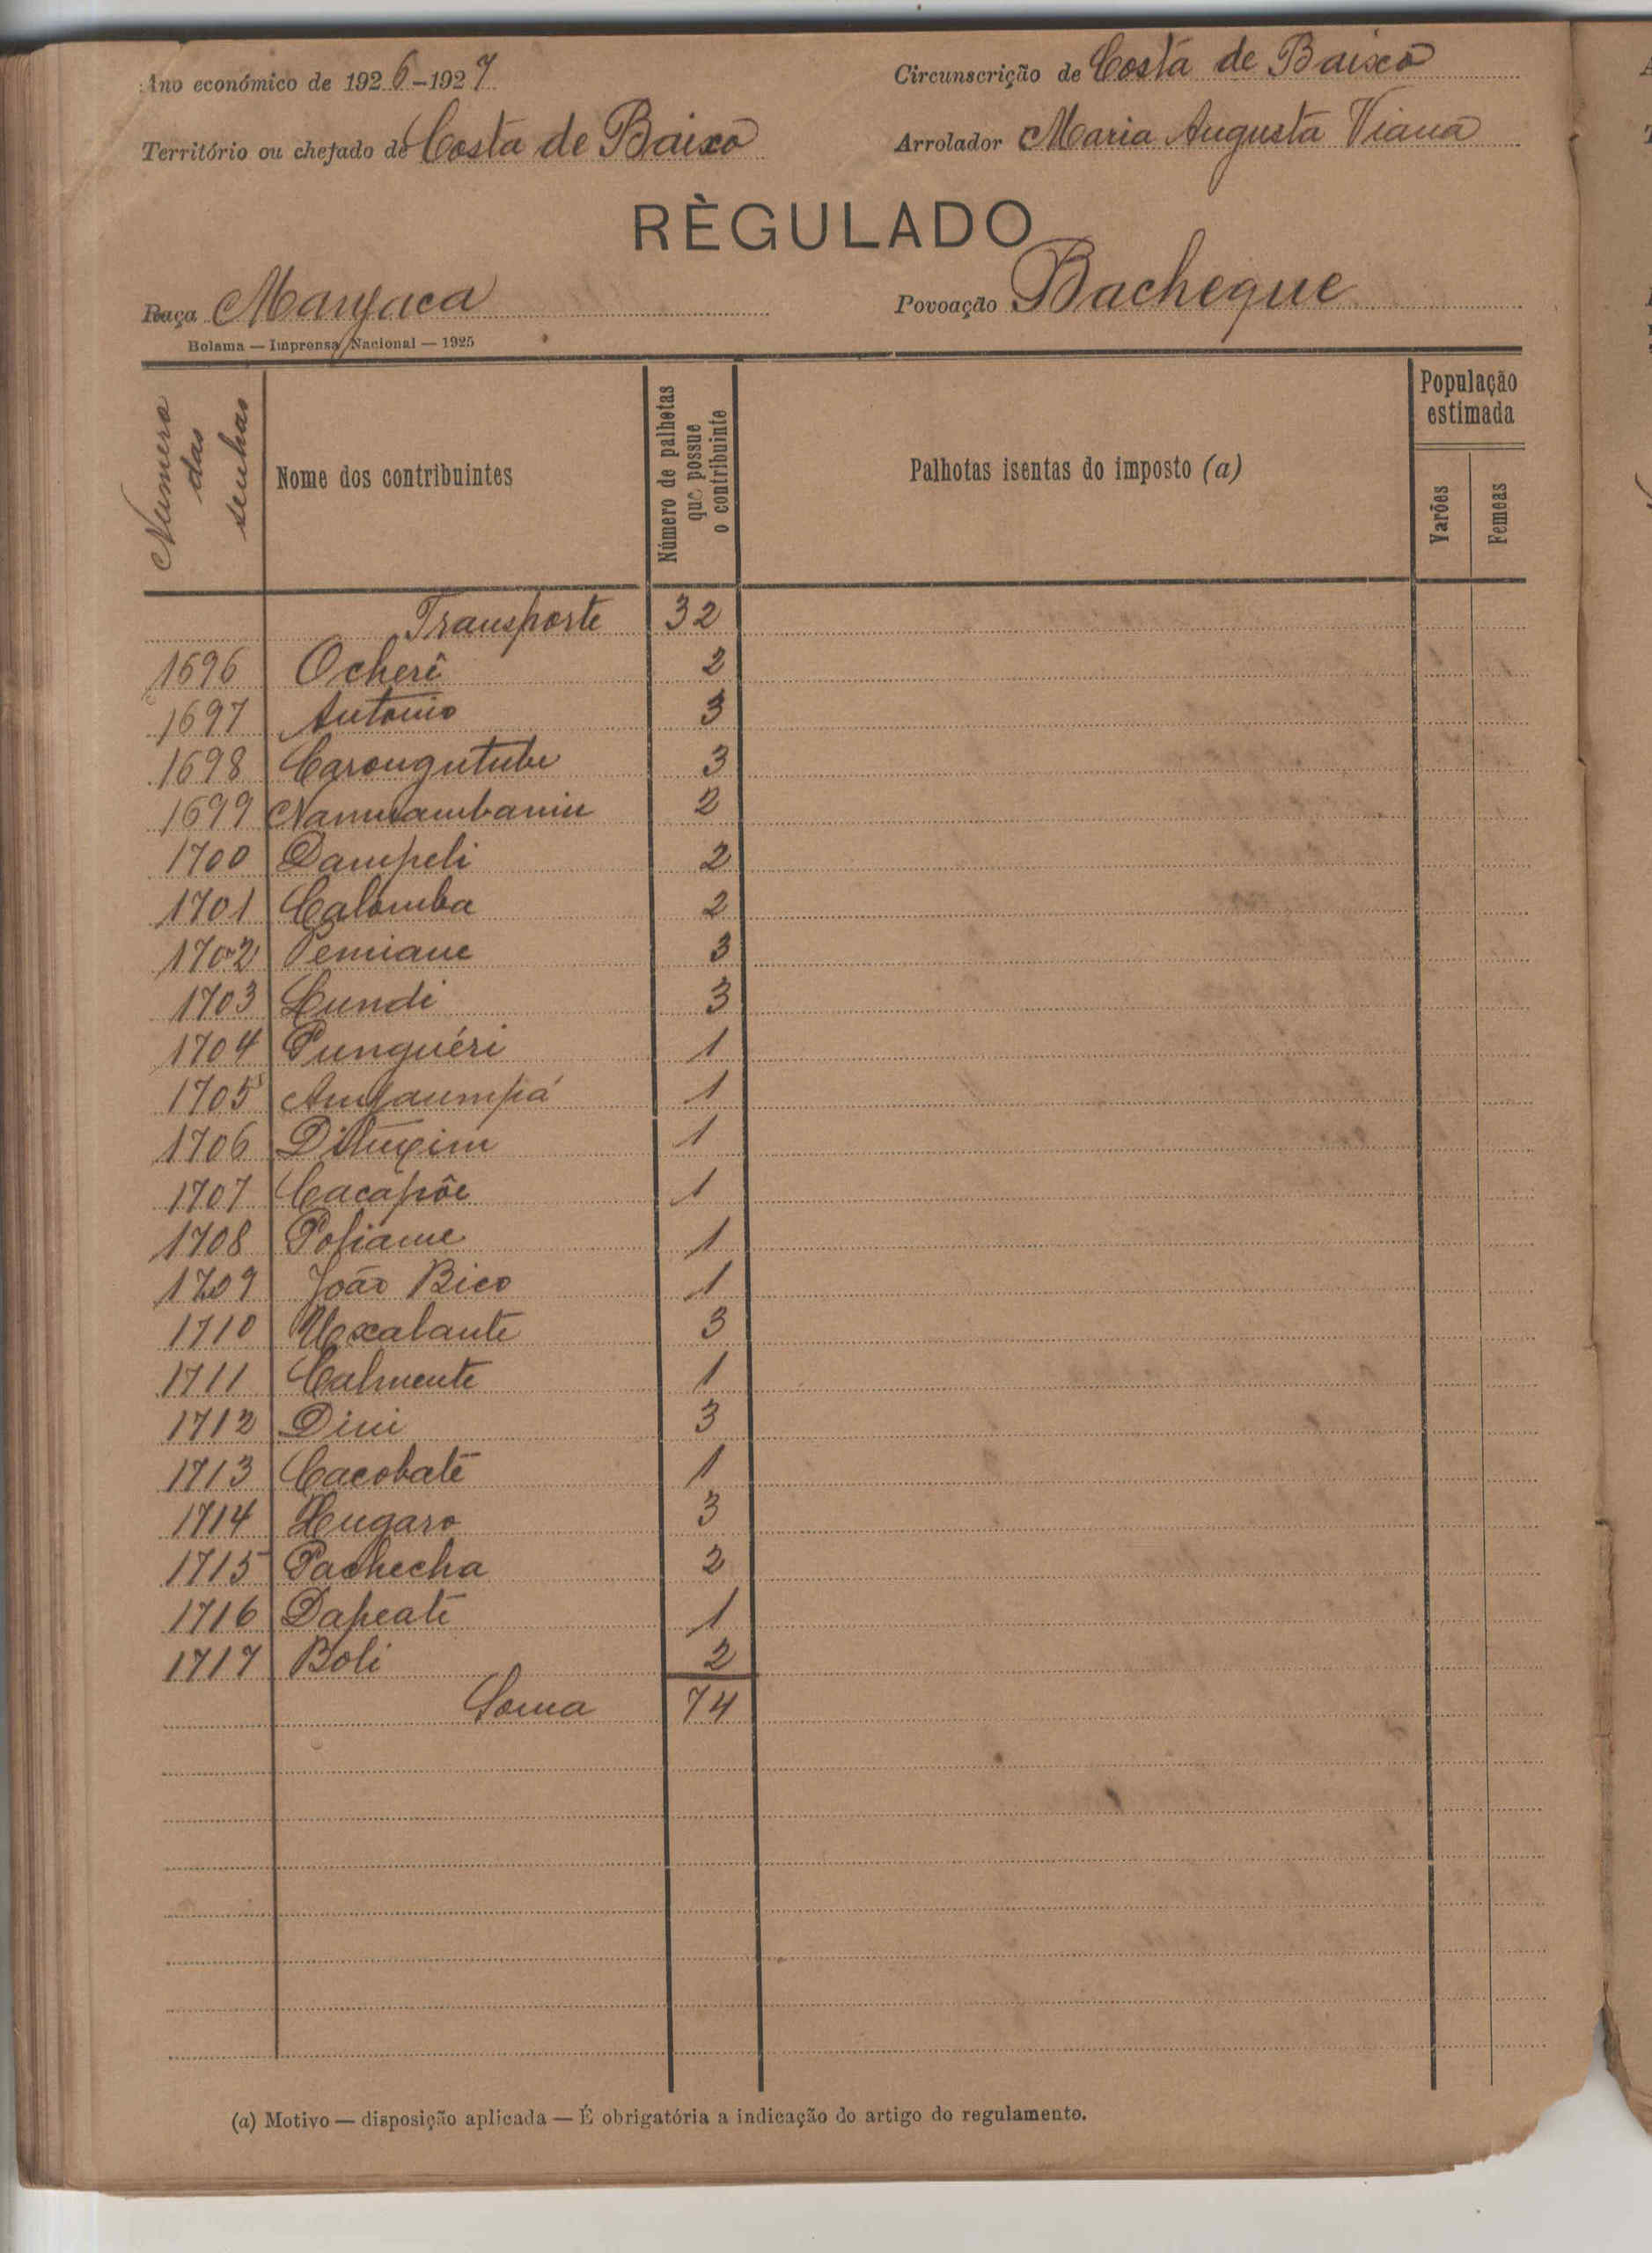 Ano económico de 1926-1927
Circunscrição de Costa de Baixo
Território ou chefado de Costa de Baixo
Arrolador Maria Augusta Viana
RÈGULADO
Raça Manjaca
Povoação Bacheque
Bolama — Imprensa Nacional — 1925
Numero das senhas
Nome dos contribuintes
Número de palhetas que possue o contribuinte
Palhotas isentas do imposto (a)
População estimada
Varões
Femeas
Transporte 32
1696 Ocherê 2
1697 Antonio 3
1698 Carongutubu 3
1699 2
1700 Dampeli 2
1701 Calomba 2
1702 Pemiane 3
1703 Lundi 3
1704 Punguéri 1
1705 1
1706 1
1707 Cacapôe 1
1708 Pofiame 1
1709 João Bico 1
1710 Uxalante 3
1711 Calmente 1
1712 Dini 3
1713 Cacobatê 1
1714 3
1715 Pachecha 2
1716 Dapeatê 1
1717 Boli 2
Soma 74
(a) Motivo — disposição aplicada — É obrigatória a indicação do artigo do regulamento.